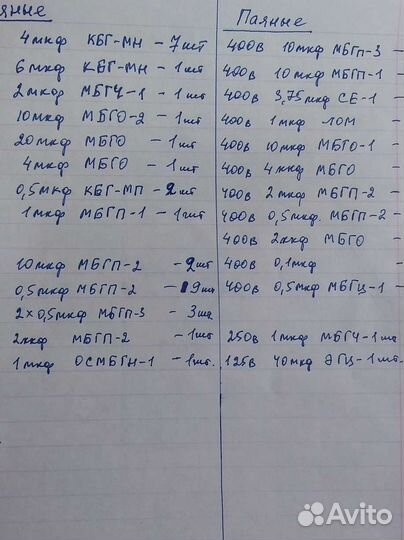 яные
4 мкф КБГ-МН - 7 шт
6 мкф КБГ-МН - 1 шт
2 мкф МБГЧ-1 - 1 шт
10 мкф МБГО-2 - 1 шт
20 мкф МБГО - 1 шт
4 мкф МБГО - 1 шт
0,5 мкф КБГ-МП - 2 шт
1 мкф МБГП-1 - 1 шт
10 мкф МБГП-2 - 2 шт
0,5 мкф МБГП-2 - 9 шт
2×0,5 мкф МБГП-3 - 3 шт
2 мкф МБГП-2 - 1 шт
1 мкф ОСМБГН-1 - 1 шт.
Паяные
400в 10 мкф МБГП-3 -
400в 10 мкф МБГП-1 -
400в 3,75 мкф СЕ-1 -
400в 1 мкф ЛОМ -
400в 10 мкф МБГО-1 -
400в 4 мкф МБГО -
400в 2 мкф МБГП-2 -
400в 0,5 мкф МБГП-2 -
400в 2 мкф МБГО -
400в 0,1 мкф -
400в 0,5 мкф МБГЦ-1 -
250в 1 мкф МБГЧ-1 шт
125в 40 мкф ЭГЦ-1 шт.
Avito